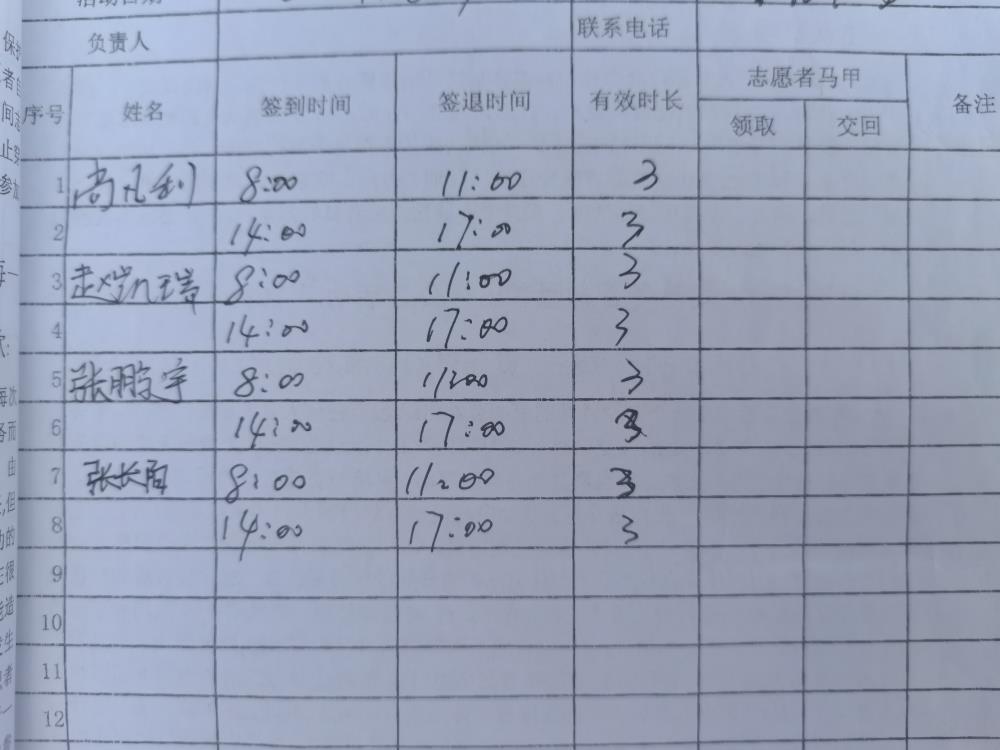 活动日期
负责人 联系电话
序号 姓名 签到时间 签退时间 有效时长 志愿者马甲 备注
领取 交回
1 尚凡利 8:00 11:00 3
2 14:00 17:00 3
3 赵凯瑞 8:00 11:00 3
4 14:00 17:00 3
5 张鹏宇 8:00 11:00 3
6 14:00 17:00 3
7 张长百 8:00 11:00 3
8 14:00 17:00 3
9
10
11
12